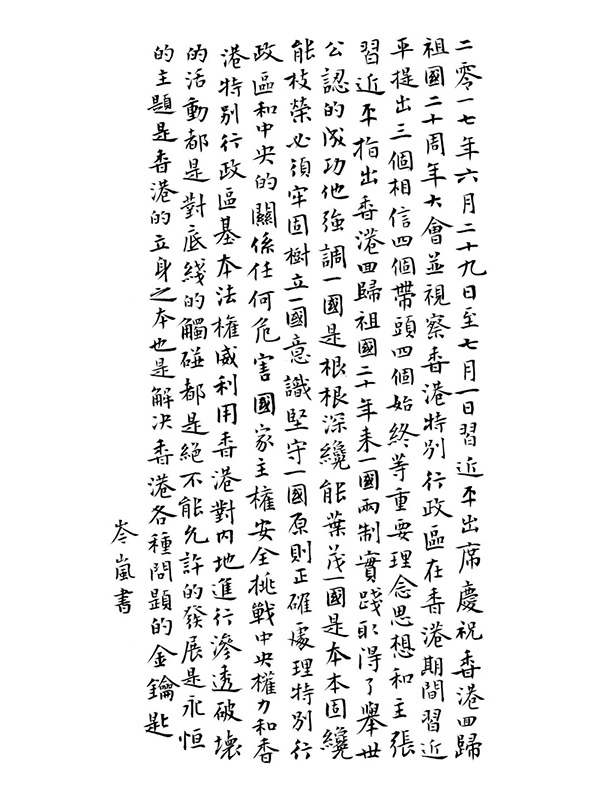 二零一七年六月二十九日至七月一日習近平出席慶祝香港囬歸
祖國二十周年大會並視察香港特别行政區在香港期間習近
平提出三個相信四個帶頭四個始終等重要理念思想和主張
習近平指出香港囬歸祖國二十年来一國兩制實踐取得了舉世
公認的成功他強調一國是根根深纔能葉茂一國是本本固纔
能枝榮必須牢固樹立一國意識堅守一國原則正確處理特别行
政區和中央的關係任何危害國家主權安全挑戰中央權力和香
港特别行政區基本法權威利用香港對内地進行滲透破壞
的活動都是對底綫的觸碰都是絕不能允許的發展是永恒
的主題是香港的立身之本也是解决香港各種問題的金鑰匙
岑嵐書